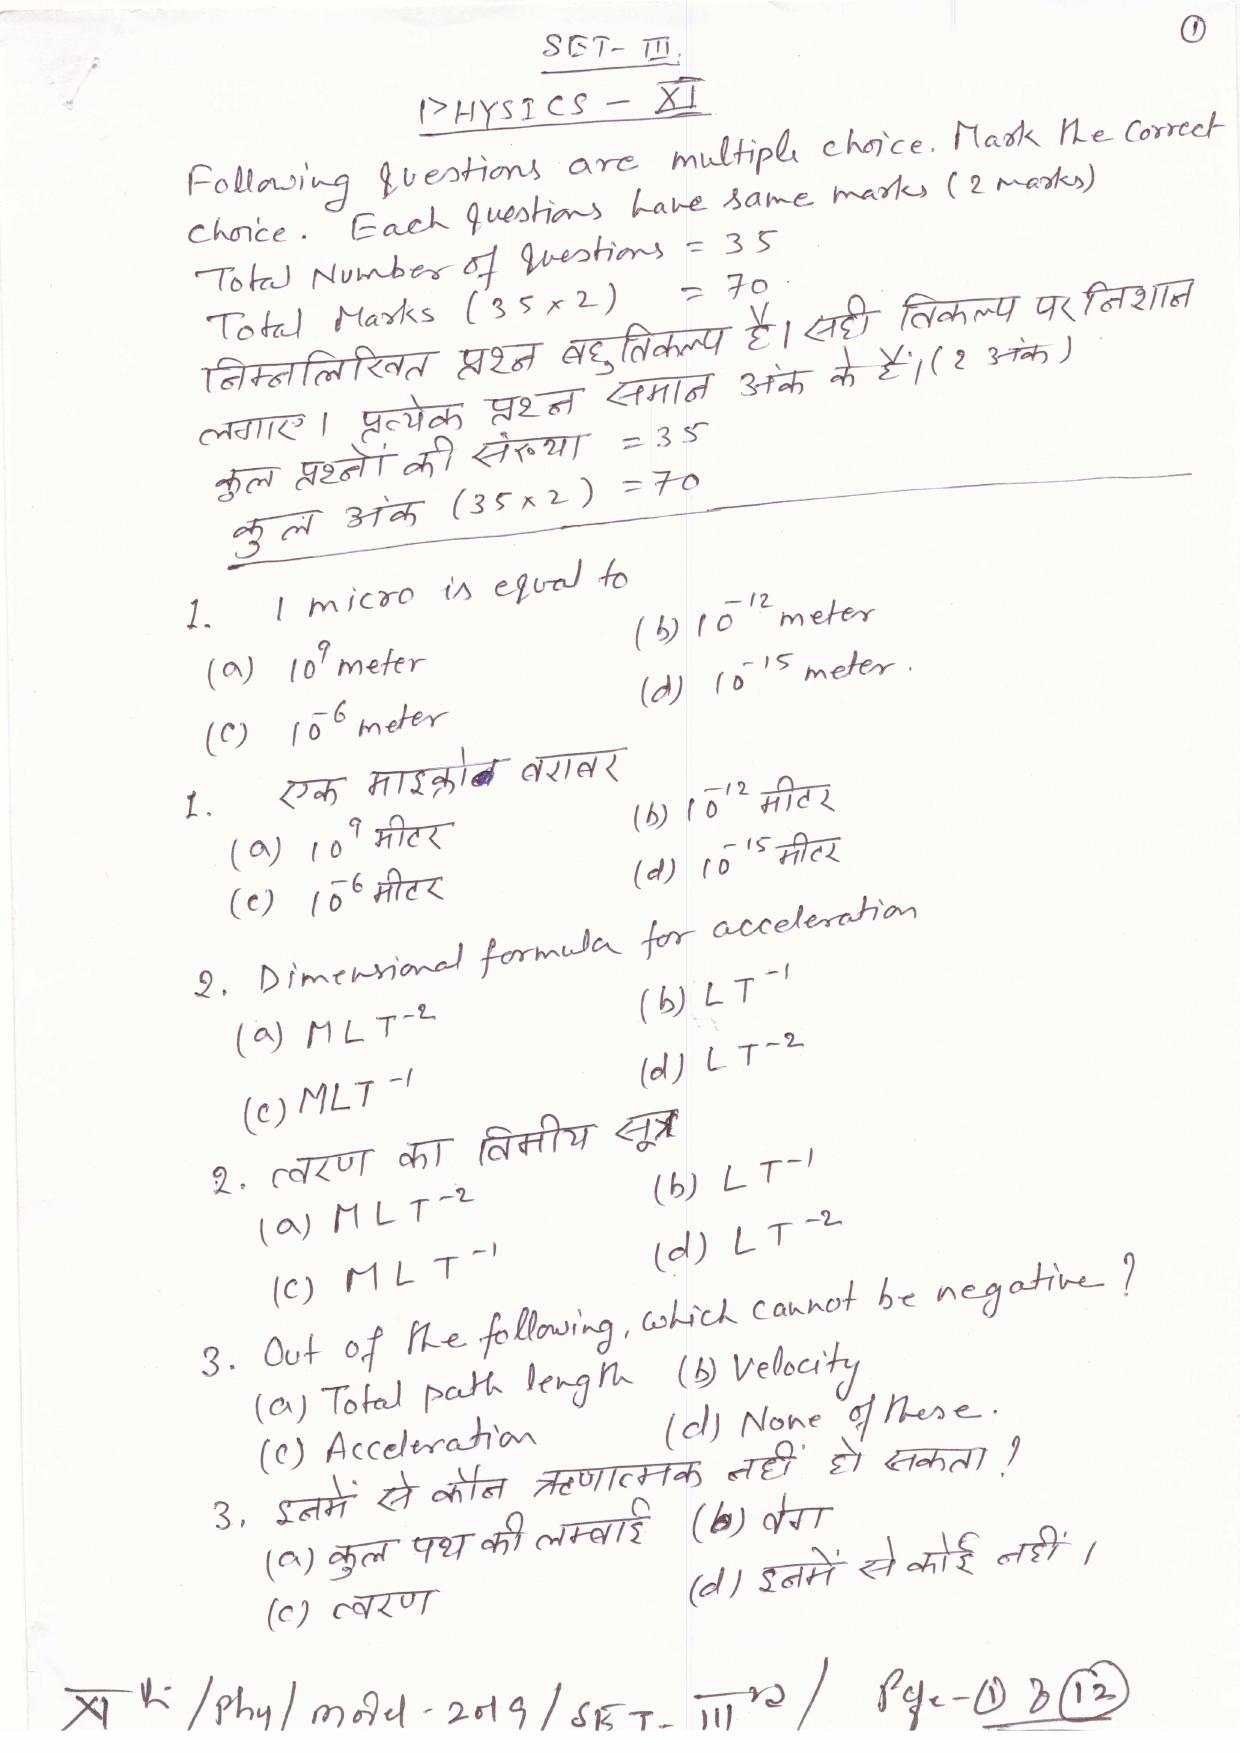 ①
SET- III.
PHYSICS - XI
Following questions are multiple choice. Mark the correct
choice. Each questions have same marks (2 marks)
Total Number of questions = 35
Total Marks (35 x 2) = 70.
निम्नलिखित प्रश्न बहुविकल्प है। सही विकल्प पर निशान
लगाए। प्रत्येक प्रश्न समान अंक के हैं।(2 अंक)
कुल प्रश्नों की संख्या = 35
कुल अंक (35 x 2) = 70
1. 1 micro is equal to
(a) 10⁹ meter (b) 10⁻¹² meter
(c) 10⁻⁶ meter (d) 10⁻¹⁵ meter.
1. एक माइक्रो बराबर
(a) 10⁹ मीटर (b) 10⁻¹² मीटर
(c) 10⁻⁶ मीटर (d) 10⁻¹⁵ मीटर
2. Dimensional formula for acceleration
(a) MLT⁻² (b) LT⁻¹
(c) MLT⁻¹ (d) LT⁻²
2. त्वरण का विमीय सूत्र
(a) MLT⁻² (b) LT⁻¹
(c) MLT⁻¹ (d) LT⁻²
3. Out of the following, which cannot be negative?
(a) Total path length (b) Velocity
(c) Acceleration (d) None of these.
3. इनमें से कौन ऋणात्मक नहीं हो सकता?
(a) कुल पथ की लम्बाई (b) वेग
(c) त्वरण (d) इनमें से कोई नहीं।
XI th /Phy/ model - 2019 / SET- III rd / Page - ① of ⑫